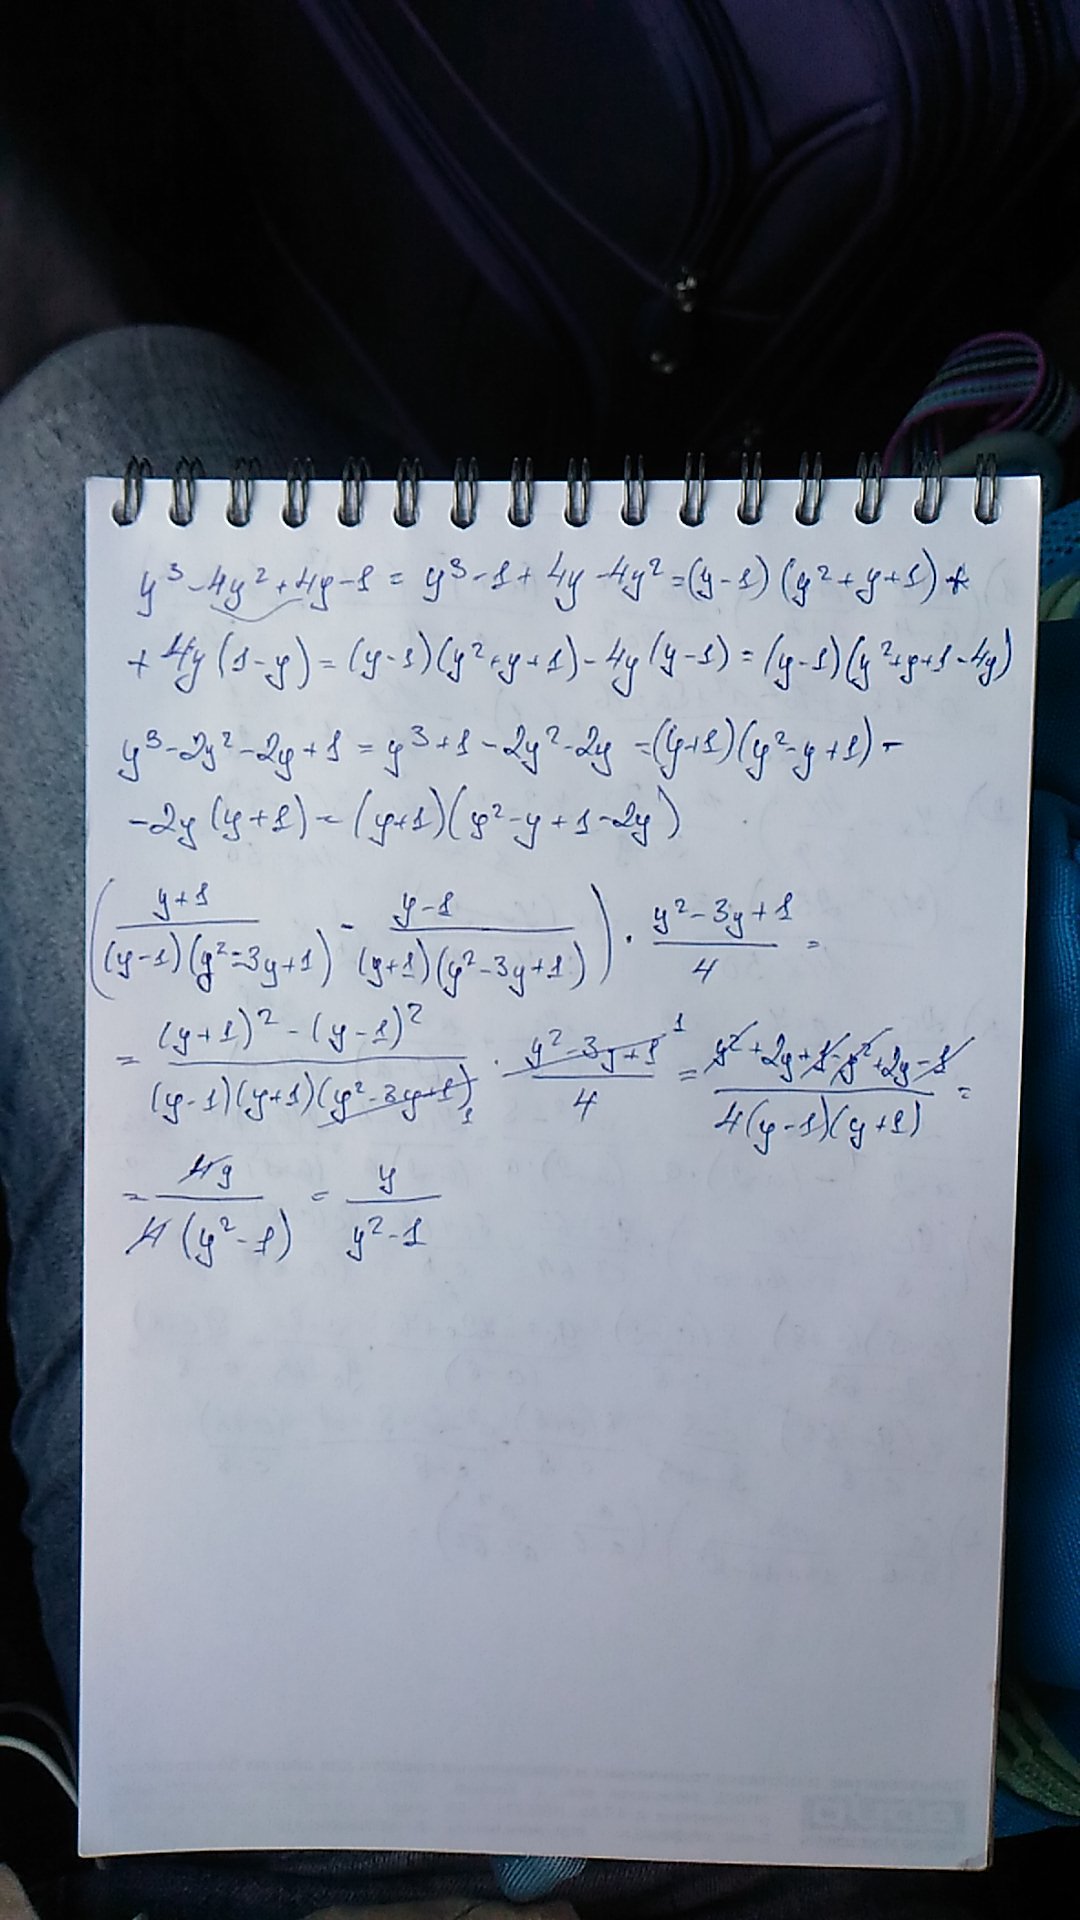 y³-4y²+4y-1 = y³-1+4y-4y² = (y-1)(y²+y+1)+
+ 4y(1-y) = (y-1)(y²+y+1)-4y(y-1) = (y-1)(y²+y+1-4y)
y³-2y²-2y+1 = y³+1-2y²-2y = (y+1)(y²-y+1)-
-2y(y+1) = (y+1)(y²-y+1-2y)
((y+1)/((y-1)(y²-3y+1)) - (y-1)/((y+1)(y²-3y+1))) · (y²-3y+1)/4 =
= ((y+1)²-(y-1)²)/((y-1)(y+1)(y²-3y+1) 1) · (y²-3y+1 1)/4 = (y²+2y+1-y²+2y-1)/(4(y-1)(y+1)) =
= 4y/(4(y²-1)) = y/(y²-1)